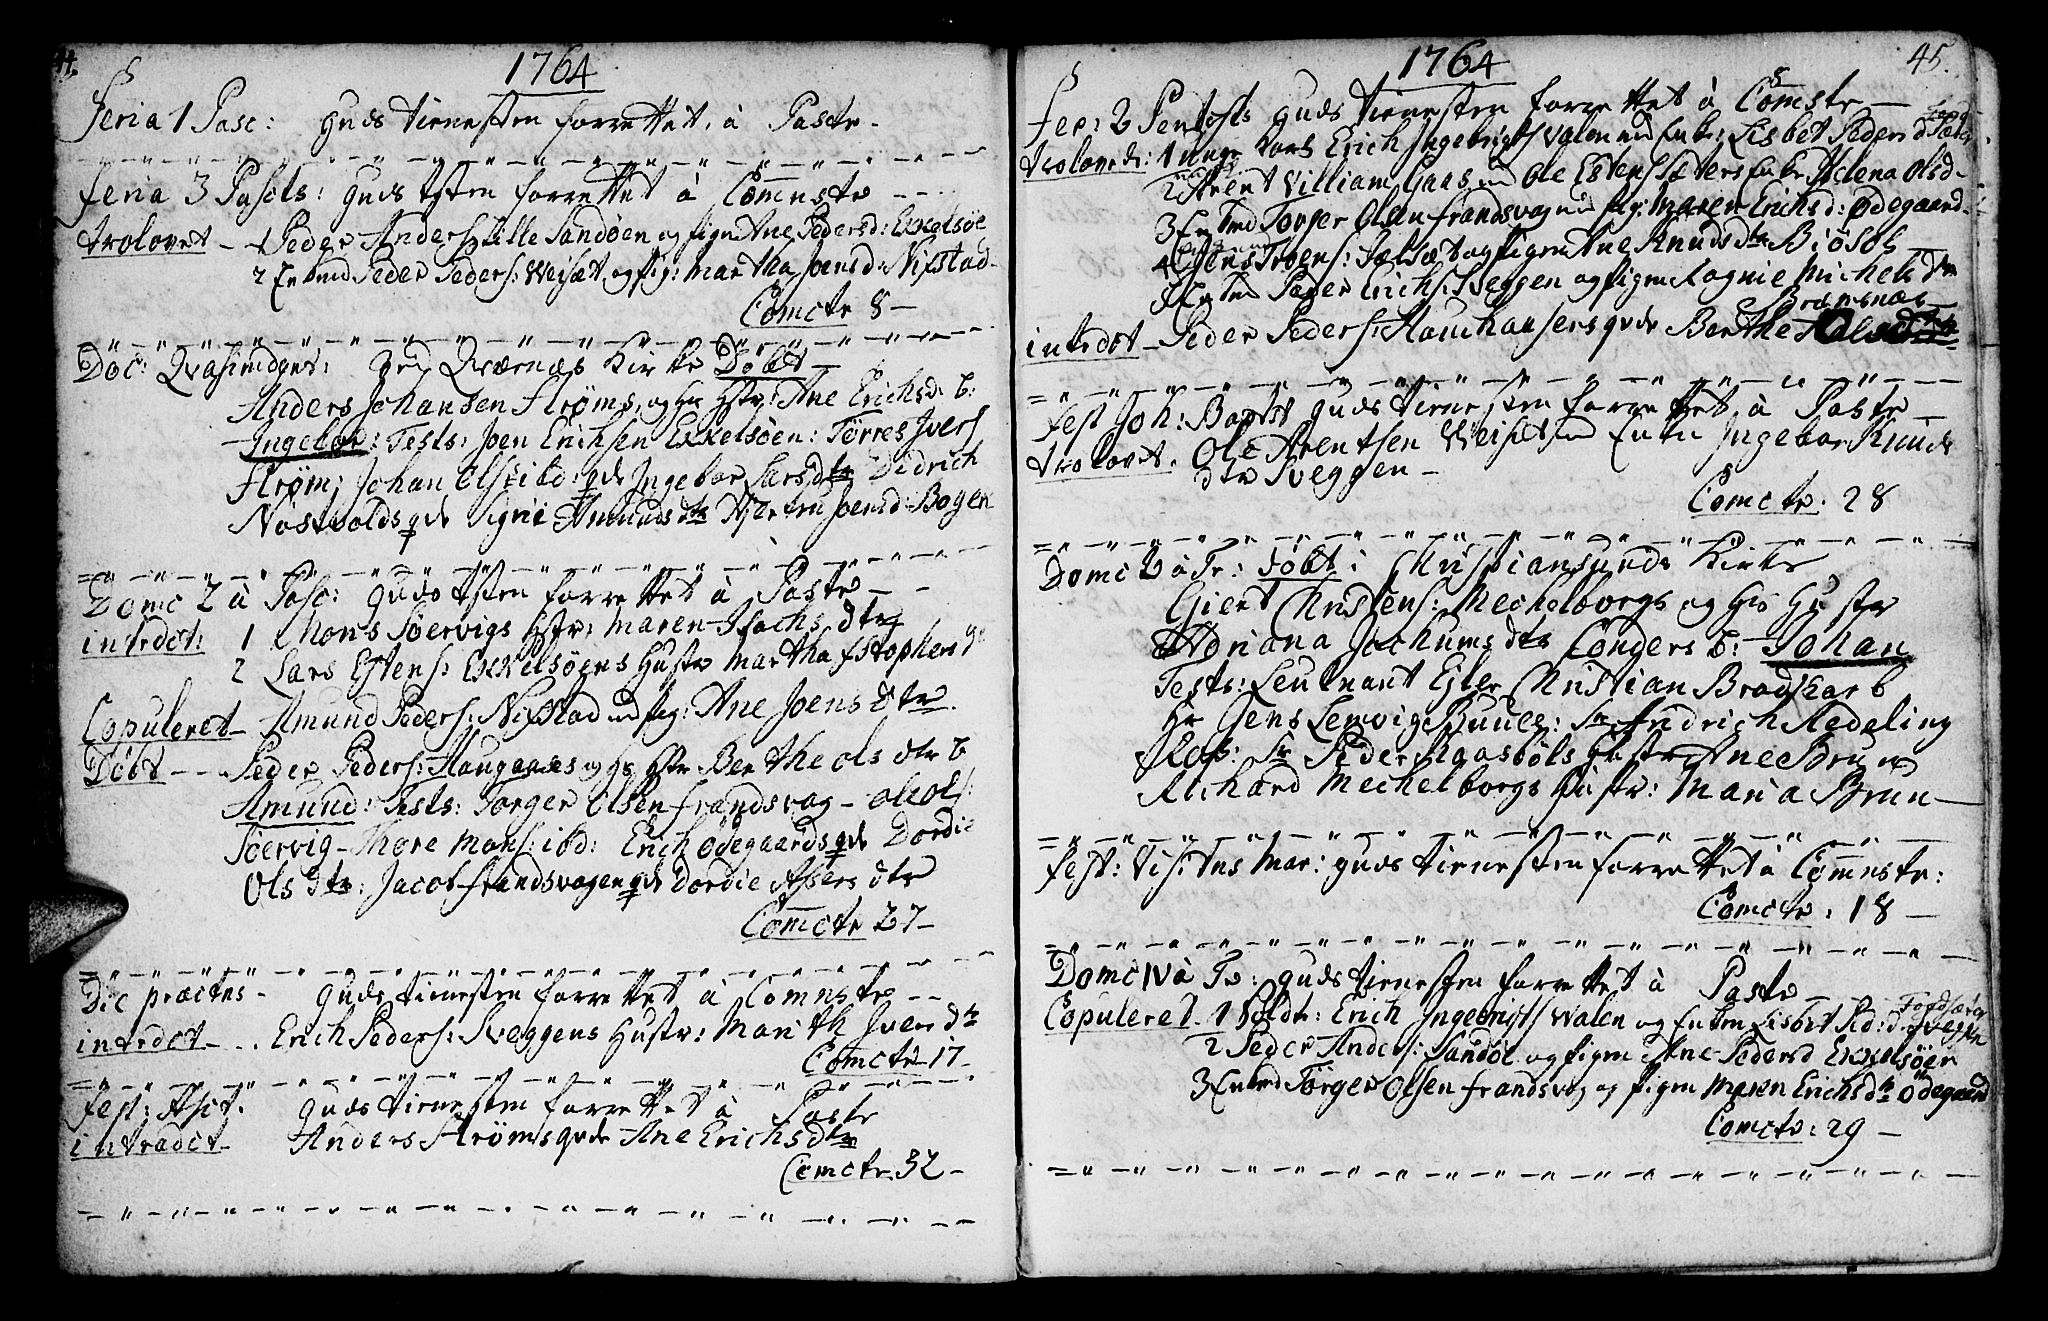 44.
1764
Feria 1 Pasc: Guds tienesten forrettet, à Pastr.
Feria 3 Pascts: Guds tsten forrettet à Comnstr
trolovet - 1 Peder Anders: Lille Sandøen og pigen Ane Pedersd: Exkelsøe
2 Enkmd Peder Peders: Weisæt og pig: Martha Joensd: Nifstad
Comctr 8 -
Doc: Qvasimdgnt: ved Qværnæs Kirke Døbt -
Anders Johansen Strøms, og hs Hstr: Ane Erichsd: b:
Ingebor: Tests: Joen Erichsen Exkelsøen: Tørres Ivers
Strøm; Johan ibd: qvde Ingebor Larsdtr Didrich
Nosvolds qvde Signe Amundsdtr Giertru Joensd: Bogen
Domc 2 à Pasc: Guds tsten forrettet à Pastr - -
intrdct: 1 Mons Søervigs Hstr: Maren Isachs dtr
2 Lars Estens: Exkelsøens Hustr Martha Stophers d
Copuleret - Amund Peders: Nifstad md pig: Ane Joens dtr.
Døbt - - Peder Peders: Haugenes og hs Hstr Berthe Ols dtr b
Amund: Tests: Torger Olsen Frandsvog - Ole Ols:
Søervig - Thore Mons: ibd: Erich Ødegaards qvde Dordie
Ols dtr: Jacob Frandsvogen qvde Dordie Assers dtr
Comctr 27 -
Die præctns - Guds tienesten forrettet à Comnstr - -
intrdct - . Erich Peders: Sveggens Hustr: Marith Iversdtr
Comctr 17 -
Fest: Asct. Guds tienesten forrettet à Pastr
intradct - Anders Strøms qvde Ane Erichsdtr
Comctr. 32 -

1764
45.
Fer: 2 Pentcsts Guds tienesten forrettet à Comstr -
trolovede: 1 unge karl Erich Ingebrigts Valen md Enke: Lisbet Peders d
2 Arent Villiam Gaas md Ole Estens Sæters Enke Helena Olsd -
3 Enkmd Torger Olsen Frandsvog md pig: Maren Erichsd: Ødegaard -
4 Jens Troens: Sælsæt og pigen Ane Knudsdtr Biøsøe -
5 Enkmd Peder Erichs: Sveggen og pigen Ragnie Michels dtr
Bremsnæs -
intrdct - Peder Peders: Hauchansers qvde Berthe Olsdtr
Fest Joh: Baptst Guds tienesten forrettet, à Pastr -
trolovet. Ole Arentsen Weiset md Enken Ingebor Knuds
dtr Sveggen -
Comctr. 28
Domc 2 à Tr: Døbt i Christiansunds Kirke
Giert Christens: Mechelborgs og his Hustr
Adriana Jochumsdtr Congers b: Johan
Tests: Leutnant Ejler Christian Brodskorb
Hr Jens Lemvig Buues: Sr Fridrich Redeling
Sr Peder Raasbøls Hustr Ane Brun
Richard Mechelborgs Hustr: Maria Brun -
Fest: Vis: tns Mar: Guds tienesten forrettet à Comnstr:
Comctr. 18 -
Domc IV à Tr: Guds tienesten forrettet à Pastr -
Copuleret - 1 Soldtr: Erich Ingebrigts Walen og Enken Lisbet Ped: d: Sveggen
2 Peder Anders: Sandøe og pigen Ane Pedersd Exkelsøen
3 Enkmd Tørger Olsen Frandsvog og pigen Maren Erichsdtr Ødegaard
Comctr: 29 -